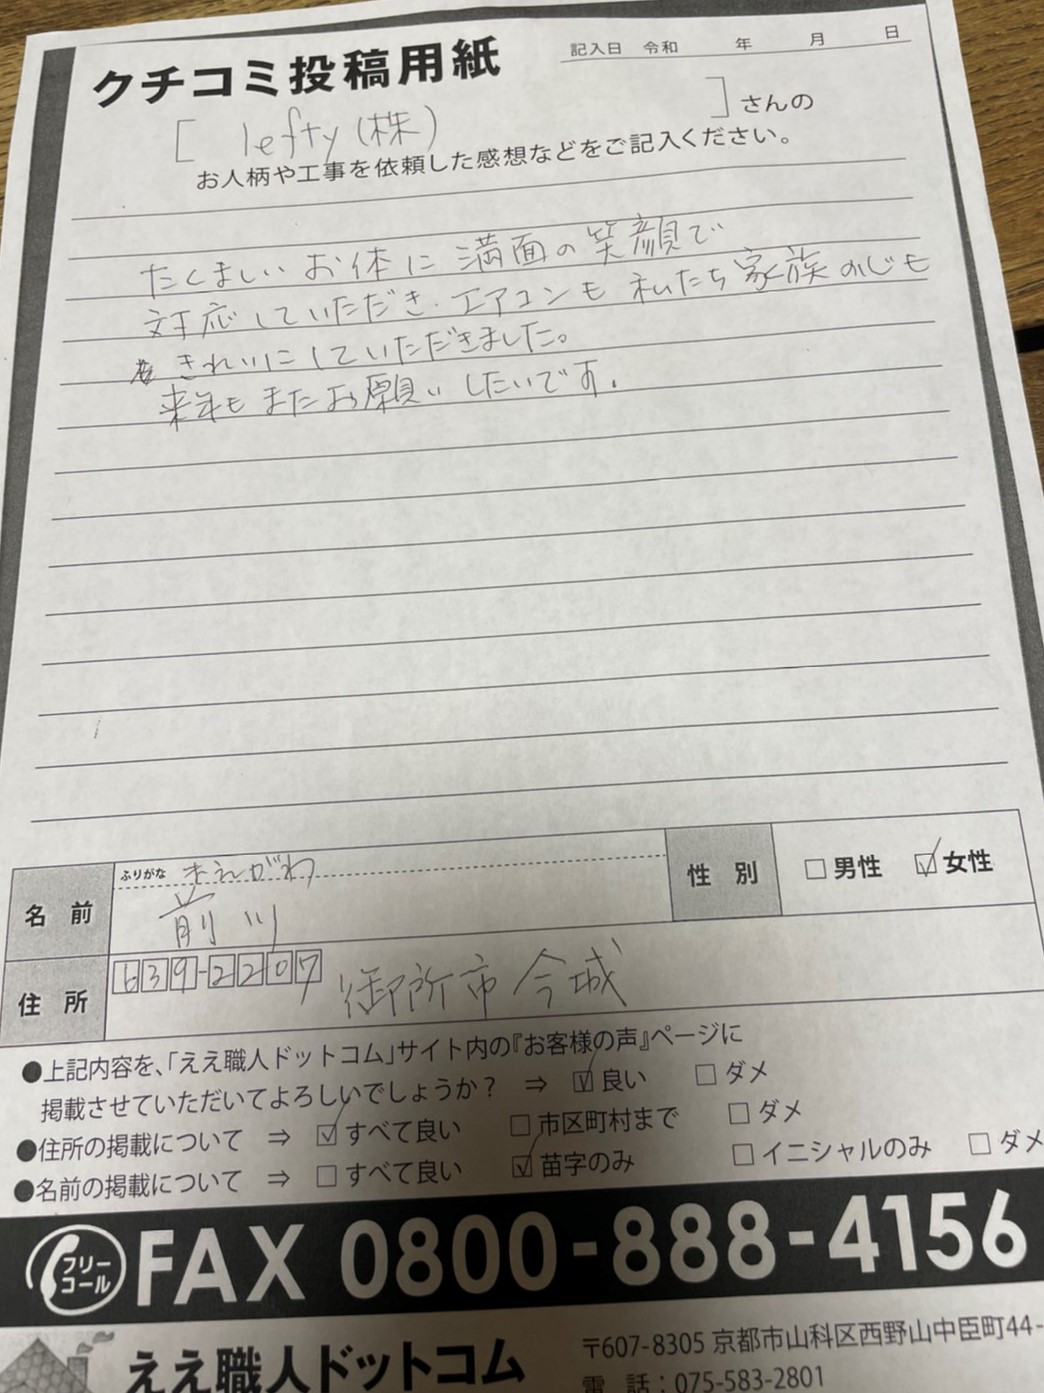 クチコミ投稿用紙
記入日 令和 年 月 日
[ lefty(株) ]さんの
お人柄や工事を依頼した感想などをご記入ください。
たくましいお体に満面の笑顔で
対応していただき.エアコンも私たち家族の心も
きれいにしていただきました。
来年もまたお願いしたいです.
名前
ふりがな まえがわ
前川
性別
□男性 ☑女性
住所
639-2207 御所市今城
●上記内容を、「ええ職人ドットコム」サイト内の『お客様の声』ページに
掲載させていただいてよろしいでしょうか? ⇒ ☑良い □ダメ
●住所の掲載について ⇒ ☑すべて良い □市区町村まで □ダメ
●名前の掲載について ⇒ □すべて良い ☑苗字のみ □イニシャルのみ □ダメ
フリーコール FAX 0800-888-4156
ええ職人ドットコム
〒607-8305 京都市山科区西野山中臣町44-
電話:075-583-2801